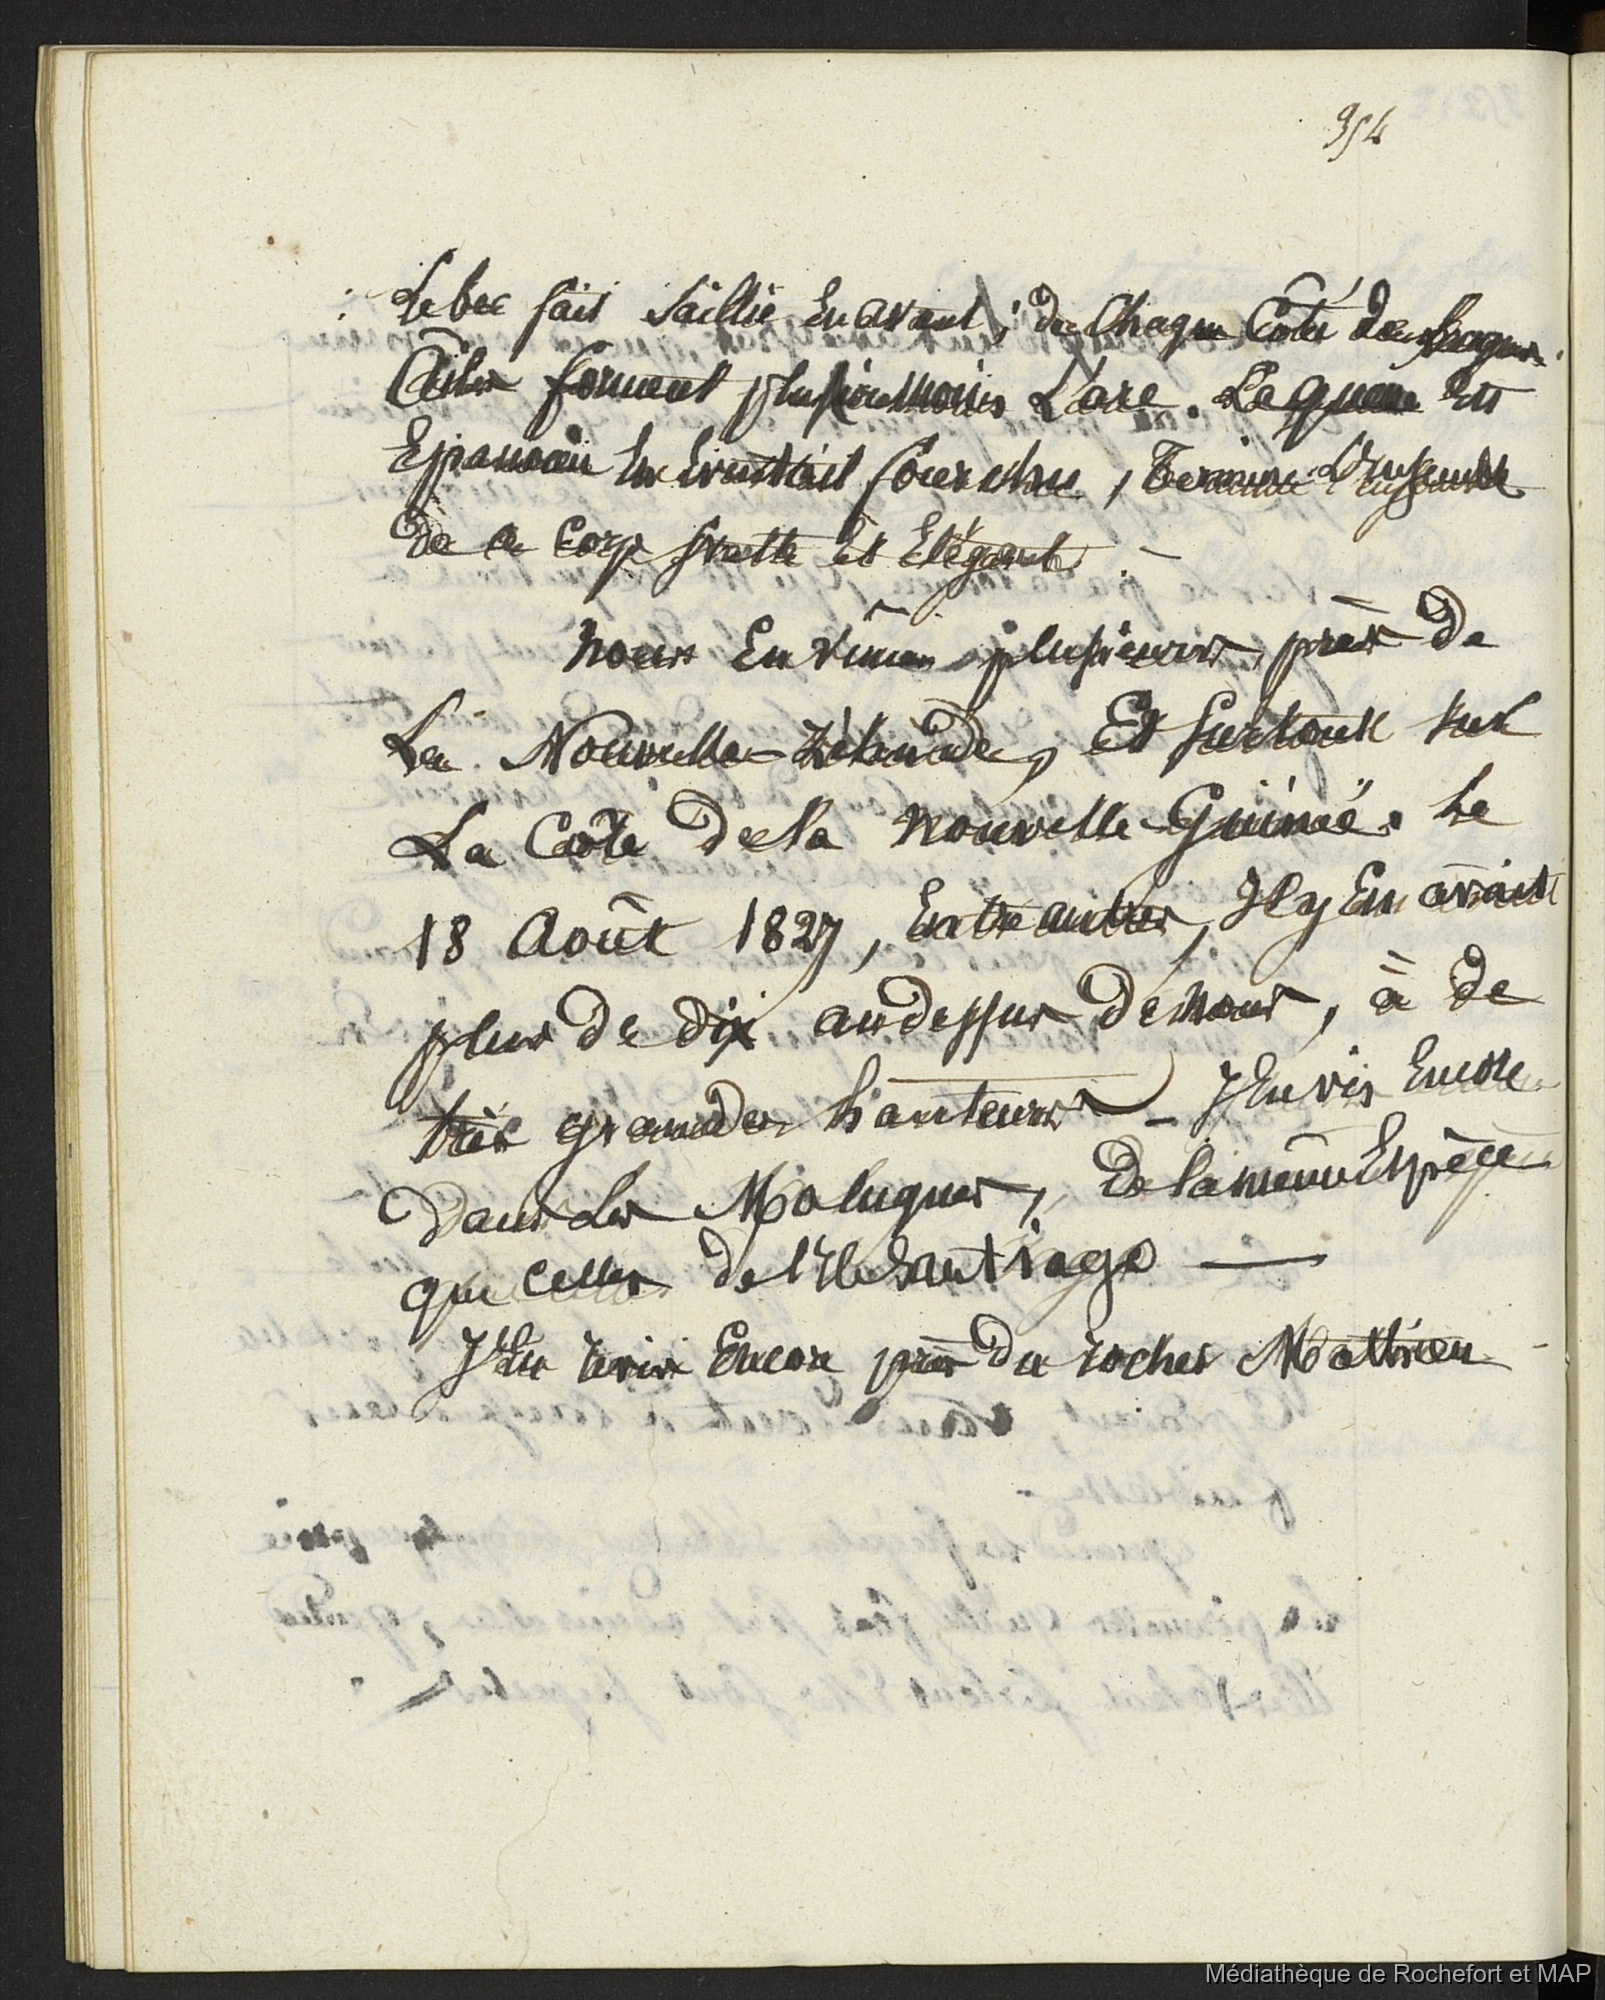 354
Le bec fait Saillie En avant, de Chaque Côté de longues
Ailes forment plus ou moins L'arc. La queue Est
Epanouie En Eventail fourchu, Termine L'ensemble
de ce Corps svelte Et Elégant. —
nous En vîmes plusieurs, près De
La Nouvelle-Zélande, Et surtout sur
La Côte De la nouvelle-Guinée. Le
18 Août 1827, Entre autres, Il y En avait
plus De dix au dessus De nous, à de
très grandes hauteurs — J'En vis Encore
Dans Les Moluques, De la même Espèce
que celles De l'Ile Santiago —
J'En revis Encore près Du rocher Mathieu
Médiathèque de Rochefort et MAP